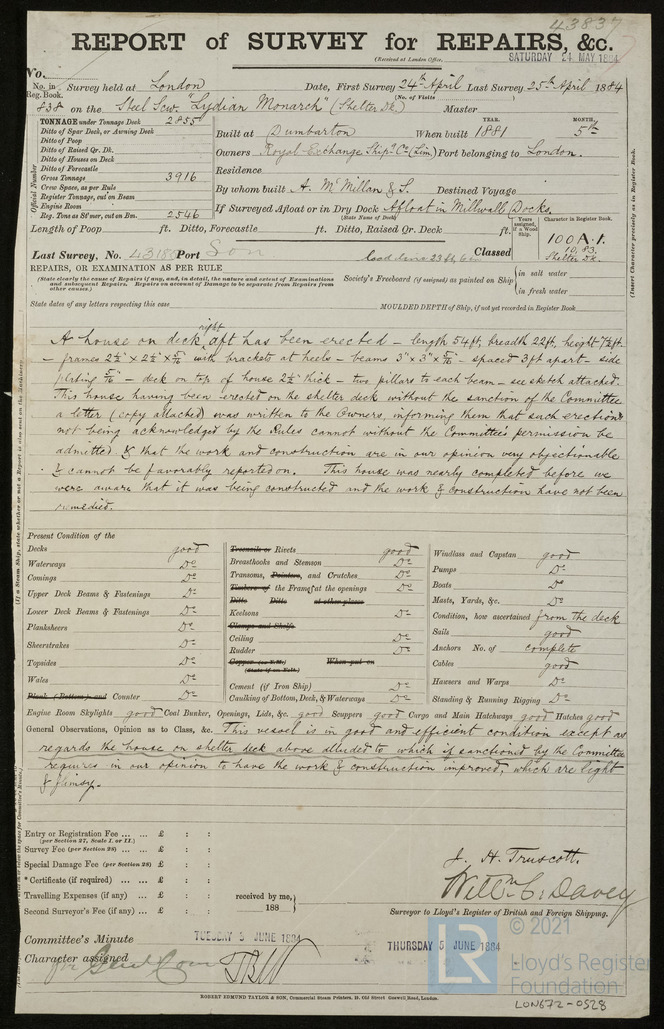 43837
REPORT of SURVEY for REPAIRS, &c.
(Received at London Office,
SATURDAY 24 MAY 1884
No.
No. in Survey held at London Date, First Survey 24th April Last Survey 25th April 1884
Reg. Book. (No. of Visits
838 on the Steel Scw. "Lydian Monarch" (Shelter Dk.) Master
TONNAGE under Tonnage Deck 2855
Ditto of Spar Deck, or Awning Deck
Ditto of Poop
Ditto of Raised Qr. Dk.
Ditto of Houses on Deck
Ditto of Forecastle
Gross Tonnage 3916
Crew Space, as per Rule
Register Tonnage, cut on Beam
Engine Room
Reg. Tons as St'mer, cut on Bm. 2546
Official Number
YEAR. MONTH.
Built at Dumbarton When built 1881 5th
Owners Royal Exchange Ship'g Co (Lim) Port belonging to London.
Residence
By whom built A. McMillan & S. Destined Voyage
If Surveyed Afloat or in Dry Dock Afloat in Millwall Docks.
(State Name of Dock)
Length of Poop ft. Ditto, Forecastle ft. Ditto, Raised Qr. Deck ft.
Years assigned, if a Wood Ship. Character in Register Book.
100 A.1.
10,83
Shelter Dk.
(Insert Character precisely as in Register Book.
Last Survey, No. Port Classed
REPAIRS, OR EXAMINATION AS PER RULE
(State clearly the cause of Repairs if any, and, in detail, the nature and extent of Examinations and subsequent Repairs. Repairs on account of Damage to be separate from Repairs from other causes.)
Society's Freeboard (if assigned) as painted on Ship
in salt water
in fresh water
State dates of any letters respecting this case
MOULDED DEPTH of Ship, if not yet recorded in Register Book
A house on deck right aft has been erected – length 54ft, breadth 22ft, height 7½ft.
– frames 2½ × 2½ × 5/16 with brackets at heels – beams 3" × 3" × 5/16 – spaced 3ft apart – side
plating 5/16 – deck on top of house 2½ thick – two pillars to each beam – see sketch attached.
This house having been erected on the shelter deck without the sanction of the Committee
a letter (copy attached) was written to the Owners, informing them that such erections
not being acknowledged by the Rules cannot without the Committee's permission be
admitted & that the work and construction are in our opinion very objectionable
& cannot be favorably reported on. This house was nearly completed before we
were aware that it was being constructed and the work & construction have not been
remedied.
Present Condition of the
Decks good
Waterways Do
Comings Do
Upper Deck Beams & Fastenings Do
Lower Deck Beams & Fastenings Do
Planksheers Do
Sheerstrakes Do
Topsides Do
Wales Do
Plank (Bottom) and Counter Do
Treenails or Rivets good
Breasthooks and Stemson Do
Transoms, Pointers, and Crutches Do
Timbers of the Frames at the openings Do
Ditto Ditto at other places Do
Keelsons Do
Clamps and Shelfs
Ceiling Do
Rudder Do
Copper (or Y.M.) When put on
(State if on Felt.)
Cement (if Iron Ship) Do
Caulking of Bottom, Deck, & Waterways Do
Windlass and Capstan good
Pumps Do
Boats Do
Masts, Yards, &c. Do
Condition, how ascertained from the deck
Sails good
Anchors No. of complete
Cables good
Hawsers and Warps Do
Standing & Running Rigging Do
Engine Room Skylights good Coal Bunker, Openings, Lids, &c. good Scuppers good Cargo and Main Hatchways good Hatches good
General Observations, Opinion as to Class, &c. This vessel is in good and efficient condition except as
regards the house on shelter deck above alluded to which if sanctioned by the Committee
requires in our opinion to have the work & construction improved, which are light
& flimsy.
Entry or Registration Fee ... ... £ : :
(per Section 27, Scale I. or II.)
Survey Fee (per Section 28) ... ... £ : :
Special Damage Fee (per Section 28) £ : :
* Certificate (if required) ... ... £ : :
Travelling Expenses (if any) ... £ : :
Second Surveyor's Fee (if any) ... £ : :
received by me,
188
J. H. Truscott.
Willm C. Davey
Surveyor to Lloyd's Register of British and Foreign Shipping.
Committee's Minute TUESDAY 3 JUNE 1884 THURSDAY 5 JUNE 1884
Character assigned
© 2021
LR
Lloyd's Register
Foundation
ROBERT EDMUND TAYLOR & SON, Commercial Steam Printers, 19, Old Street Goswell Road, London.
LON672-0528